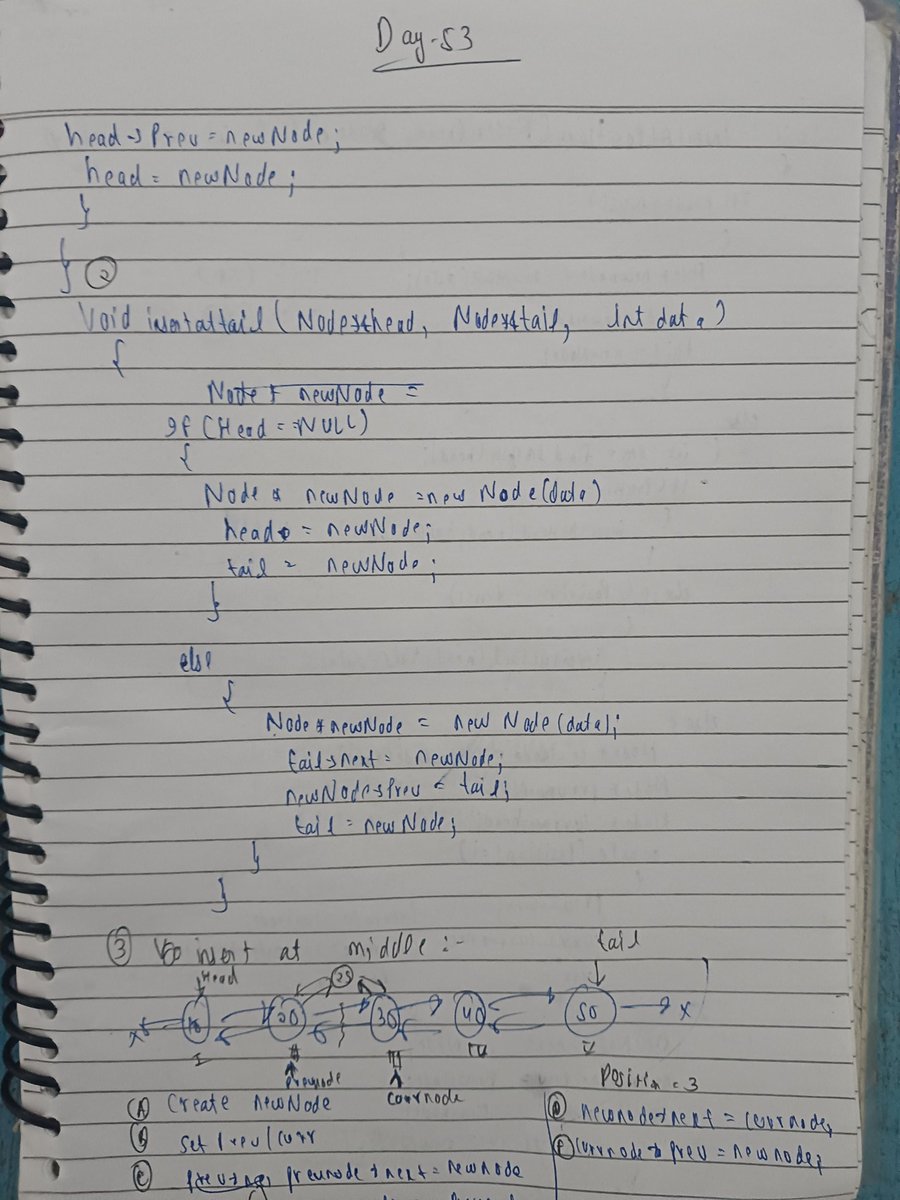 Day-53
head→Prev = newNode;
head = newNode;
}
}
②
Void insertattail ( Node*&head, Node*&tail, int data )
{
Node * newNode =
If (Head == NULL)
{
Node * newNode = new Node(data)
head = newNode;
tail = newNode;
}
else
{
Node * newNode = new Node(data);
tail→next = newNode;
newNode→Prev = tail;
tail = newNode;
}
}
③ insert at middle :-
tail
Head
25
x 10 20 30 40 50 x
I II III IV V
prevnode
currnode
Position = 3
(A) Create newNode
(B) set prev/curr
(C) prevnode→next = newnode
(D) newnode→next = currnode;
(E) currnode→prev = newnode;